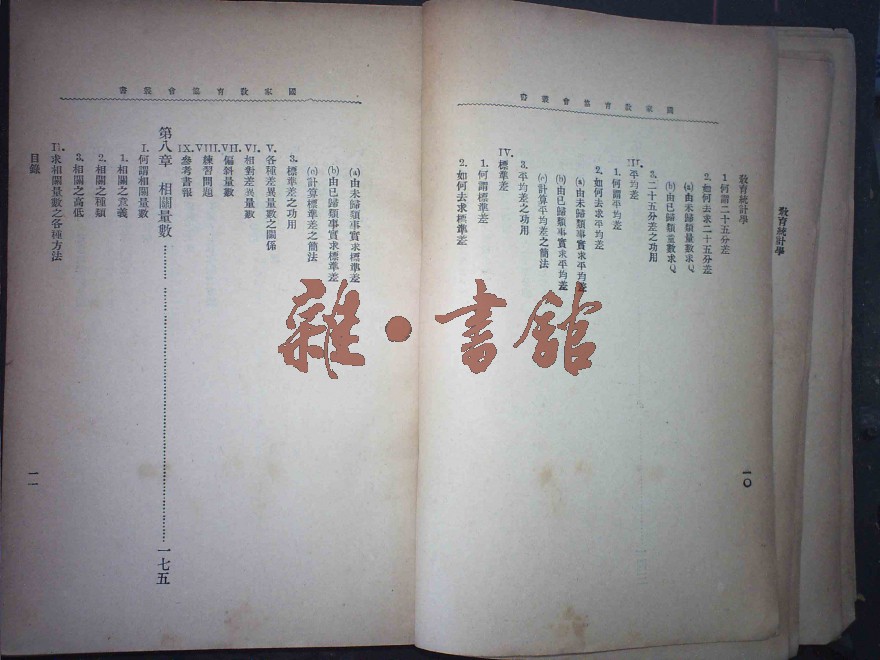 教育統計學
國家教育協會叢書
教育統計學
1 何謂二十五分差
2. 如何去求二十五分差
(a)由未歸類量數求Q
(b)由已歸類量數求Q
3. 二十五分差之功用
III. 平均差
1. 何謂平均差
2. 如何去求平均差
(a)由未歸類事實求平均差
(b)由已歸類事實求平均差
(c)計算平均差之簡法
3. 平均差之功用
IV. 標準差
1. 何謂標準差
2. 如何去求標準差
一〇
國家教育協會叢書
(a)由未歸類事實求標準差
(b)由已歸類事實求標準差
(c)計算標準差之簡法
3. 標準差之功用
V. 各種差異量數之關係
VI. 相對差異量數
VII. 偏斜量數
VIII. 練習問題
IX. 參考書報
第八章 相關量數……一七五
I. 何謂相關量數
1. 相關之意義
2. 相關之種類
3. 相關之高低
II. 求相關量數之各種方法
目錄
一一
雜·書館